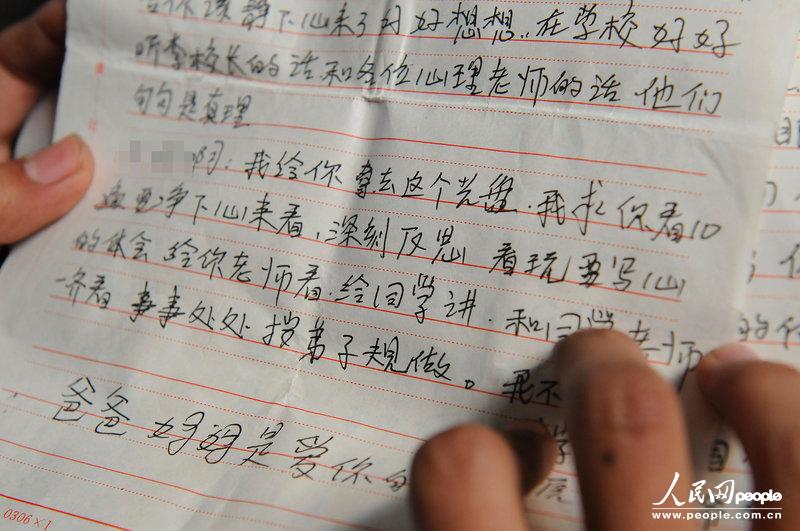 你该静下心来了对好好想想,在学校好好
听李校长的话和各位心理老师的话他们
句句是真理
啊:我给你拿去这个光盘.我求你看10
遍要净下心来看,深刻反思 看玩要写心
的体会给你老师看.给同学讲.和同学老师
一齐看 事事处处按弟子规做。我不
爸爸妈妈是爱你的
0306×1
人民网people
www.people.com.cn